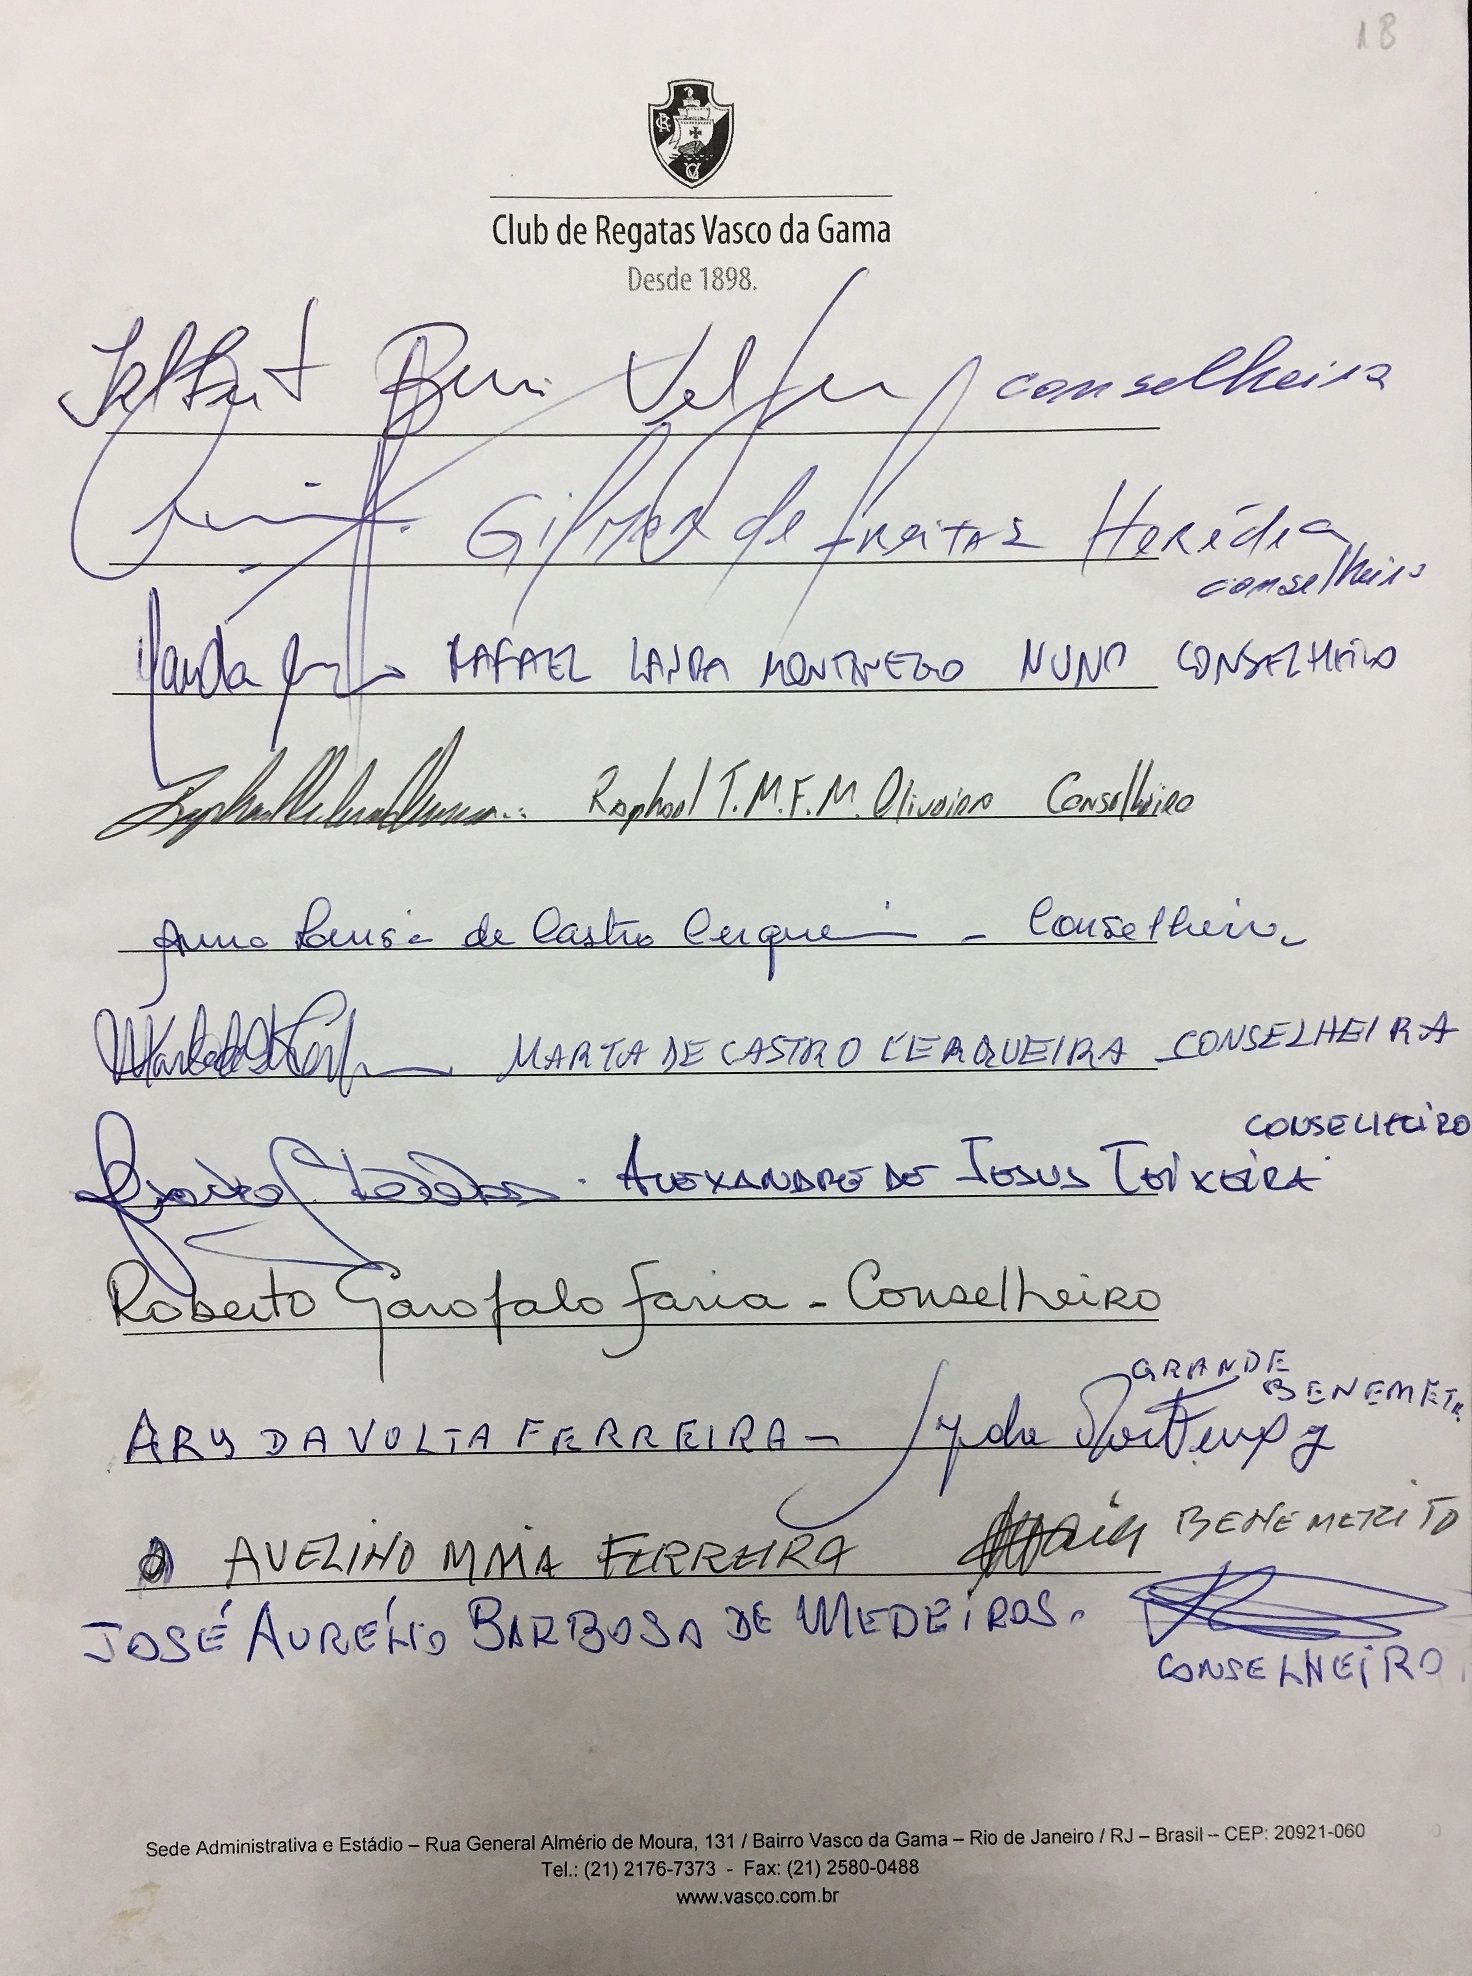 18
Club de Regatas Vasco da Gama
Desde 1898.
conselheira
Gilmar de Freitas Herédia
conselheiro
RAFAEL LANDA MONTENEGRO NUNO CONSELHEIRO
Raphael T.M.F.M. Oliveira Conselheiro
Anna Louisa de Castro Cerqueira - Conselheira
MARTA DE CASTRO CERQUEIRA CONSELHEIRA
CONSELHEIRO
ALEXANDRE DE JESUS TEIXEIRA
Roberto Garofalo Faria - Conselheiro
GRANDE
BENEMET
ARY DA VOLTA FERREIRA -
AVELINO MAIA FERREIRA BENEMERITO
JOSÉ AURÉLIO BARBOSA DE MEDEIROS.
CONSELHEIRO
Sede Administrativa e Estádio – Rua General Almério de Moura, 131 / Bairro Vasco da Gama – Rio de Janeiro / RJ – Brasil – CEP: 20921-060
Tel.: (21) 2176-7373 - Fax: (21) 2580-0488
www.vasco.com.br